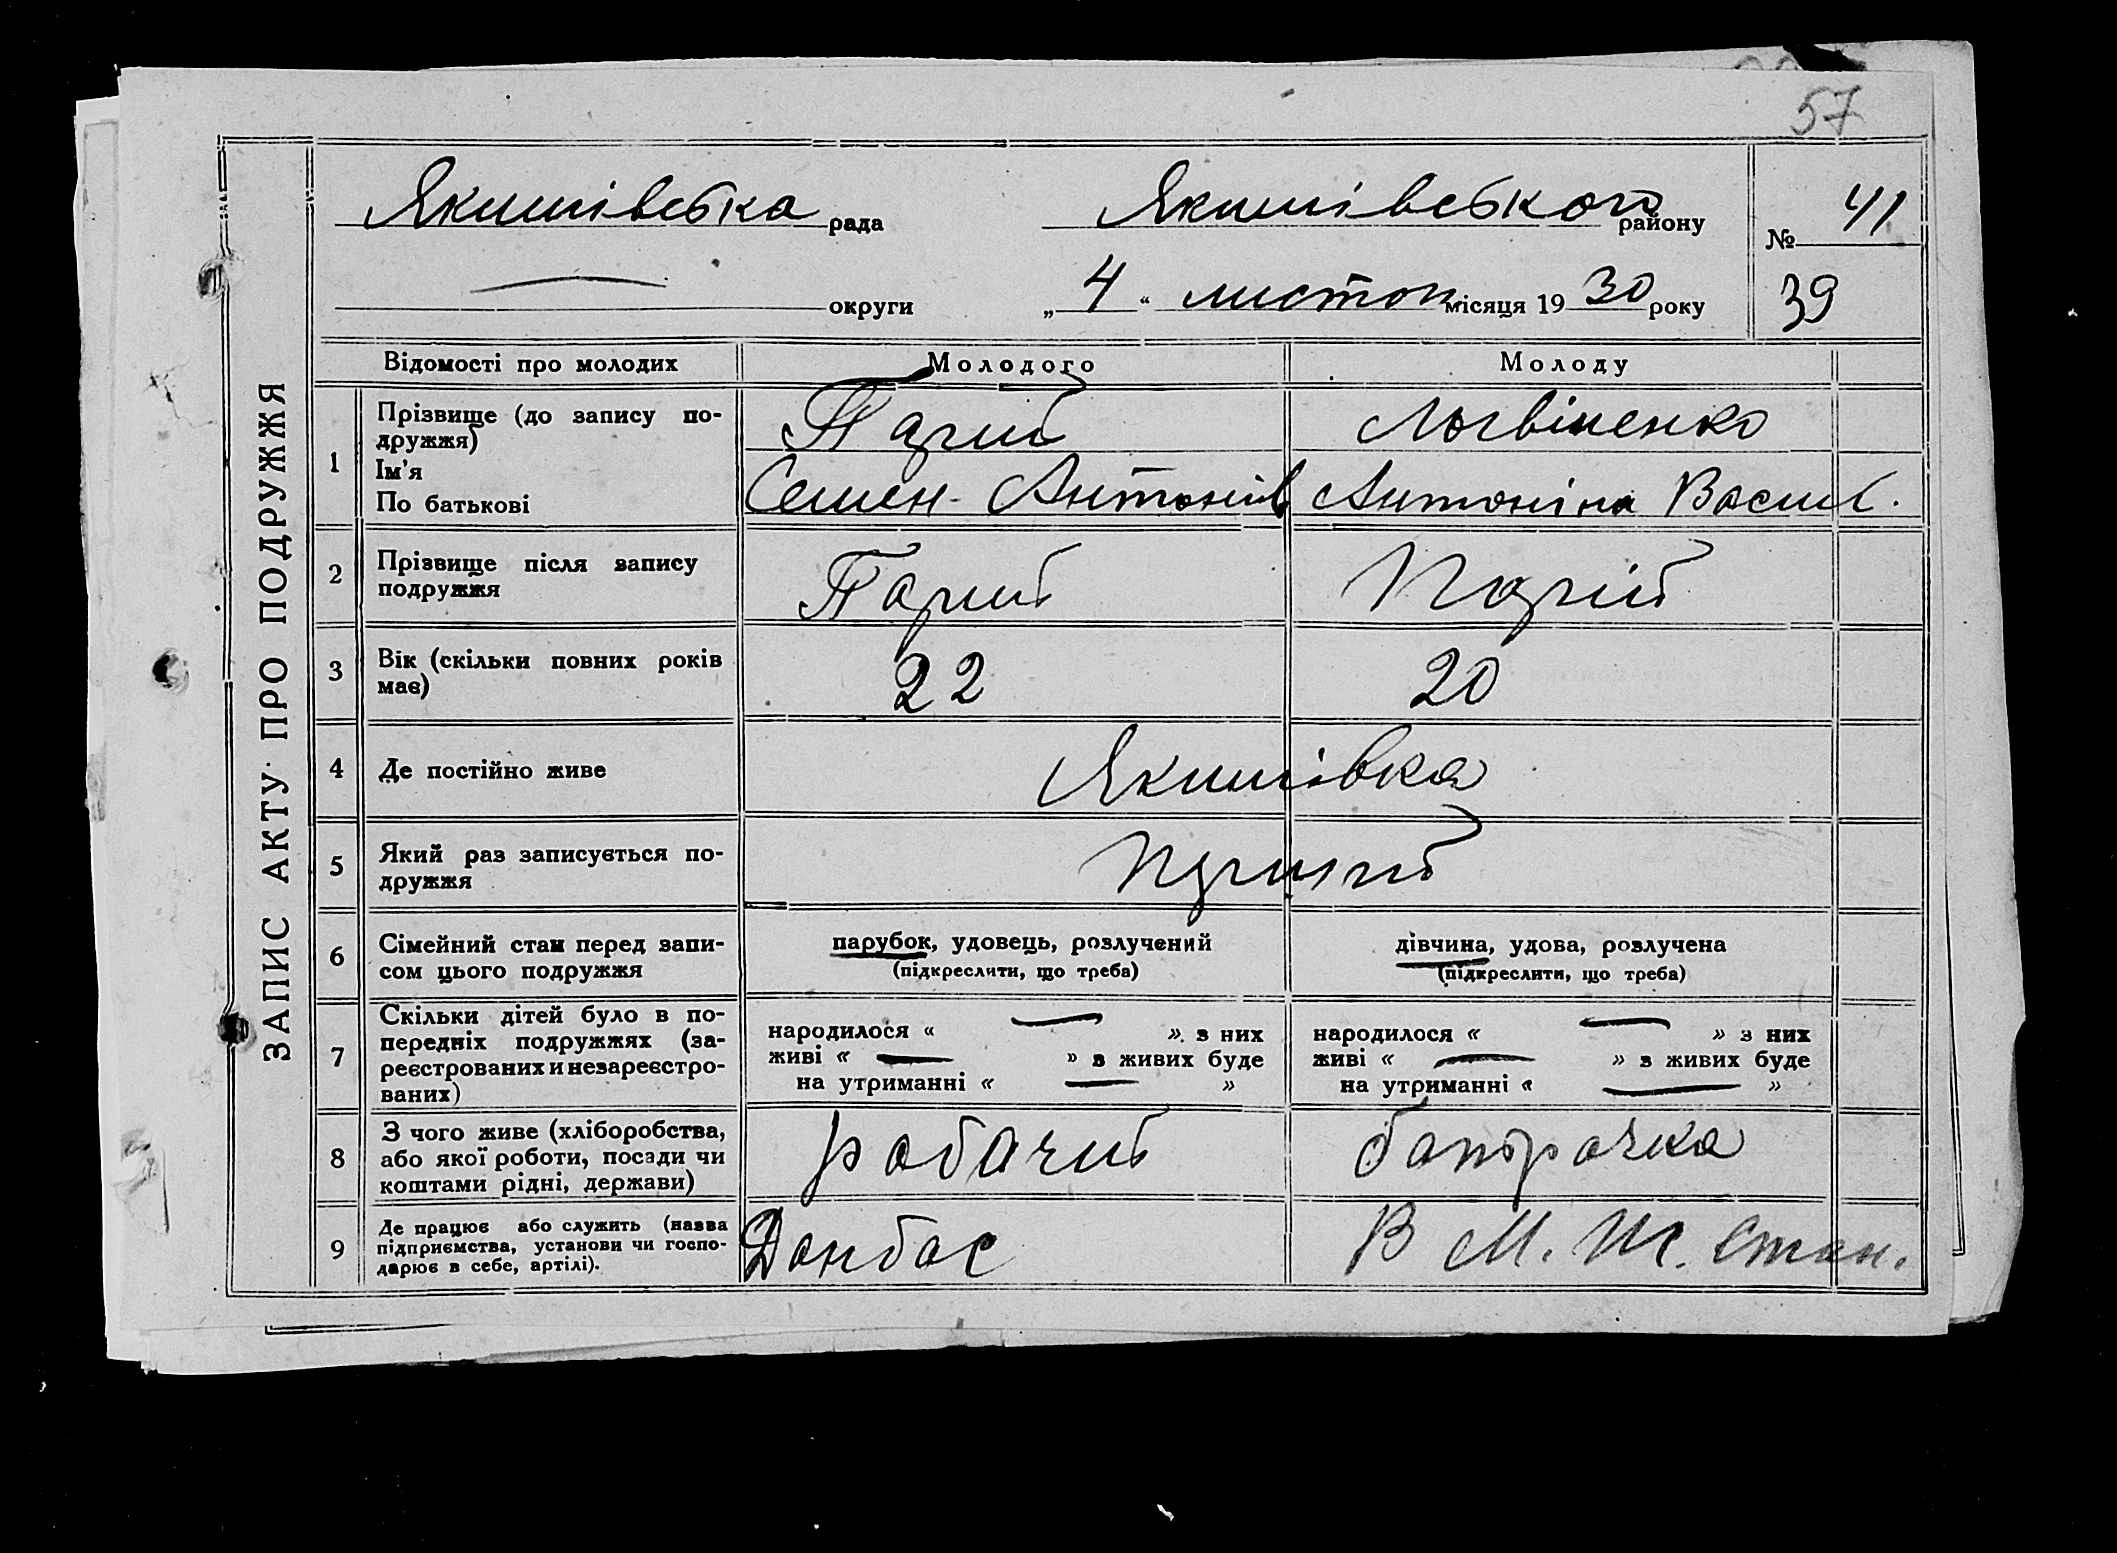 57
ЗАПИС АКТУ ПРО ПОДРУЖЖЯ
Якимівська рада Якимівського району № 41
округи „ 4 “ листоп місяця 19 30 року 39
Відомості про молодих Молодого Молоду
1 Прізвище (до запису по-
дружжя)
Ім'я
По батькові
Парий
Семен Антонів
Логвіненко
Антоніна Васил.
2 Прізвище після запису
подружжя
Парий
Парій
3 Вік (скільки повних років
має)
22
20
4 Де постійно живе
Якимівка
5 Який раз записується по-
дружжя
6 Сімейний стан перед запи-
сом цього подружжя
парубок, удовець, розлучений
(підкреслити, що треба)
дівчина, удова, розлучена
(підкреслити, що треба)
7 Скільки дітей було в по-
передніх подружжях (за-
реєстрованих и незареєстро-
ваних)
народилося « » з них
живі « » з живих буде
на утриманні « »
народилося « » з них
живі « » з живих буде
на утриманні « »
8 З чого живе (хліборобства,
або якої роботи, посади чи
коштами рідні, держави)
робочий
9 Де працює або служить (назва
підприємства, установи чи госпо-
дарює в себе, артілі).
Донбас
В М. Т. Стан.